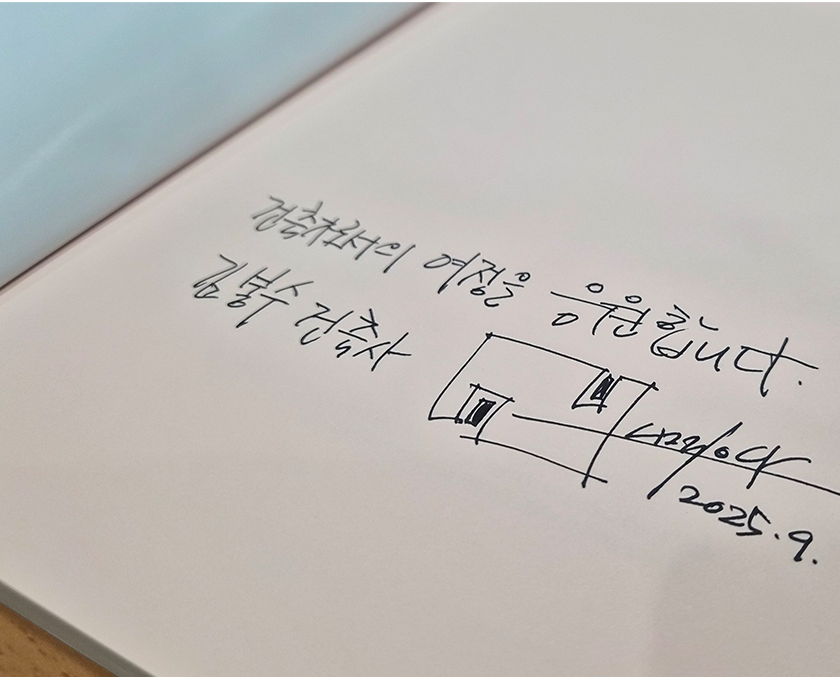 건축천사의 여정을 응원합니다.
김봉수 건축사
2025.9.